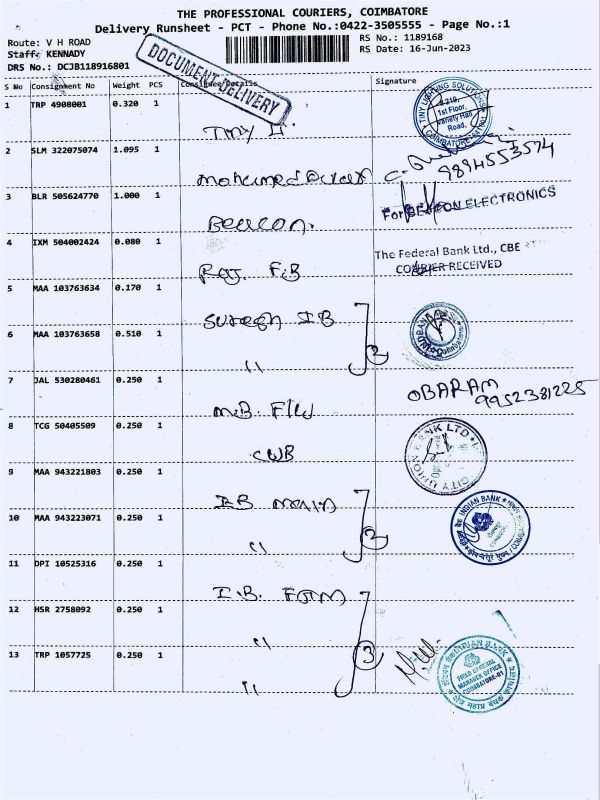 THE PROFESSIONAL COURIERS, COIMBATORE
Delivery Runsheet - PCT - Phone No.:0422-3505555 - Page No.:1
Route: V H ROAD
RS No.: 1189168
Staff: KENNADY
RS Date: 16-Jun-2023
DRS No.: DCJB118916801
DOCUMENT DELIVERY
S No Consignment No Weight PCS Consignee Details Signature
1 TRP 4908001 0.320 1 Tiny L.
TINY LIGHTING SOLUTIONS 1st Floor, Variety Hall Road, COIMBATORE
2 SLM 322075074 1.095 1
9894553574
3 BLR 505624770 1.000 1 Beacon. For BEACON ELECTRONICS
4 IXM 504002424 0.080 1 Raj. F.B
The Federal Bank Ltd., CBE
COURIER RECEIVED
5 MAA 103763634 0.170 1 Suresh IB
6 MAA 103763658 0.510 1 " 2
7 JAL 530280461 0.250 1 M.B. F/W OBARAM
9952381225
8 TCG 50405509 0.250 1 CUB
CITY UNION BANK LTD
9 MAA 943221803 0.250 1 IB main
10 MAA 943223071 0.250 1 " 2
INDIAN BANK
11 DPI 10525316 0.250 1 I.B. Fgm
12 HSR 2758092 0.250 1 "
13 TRP 1057725 0.250 1 " 3
INDIAN BANK FIELD GENERAL MANAGER OFFICE COIMBATORE-01